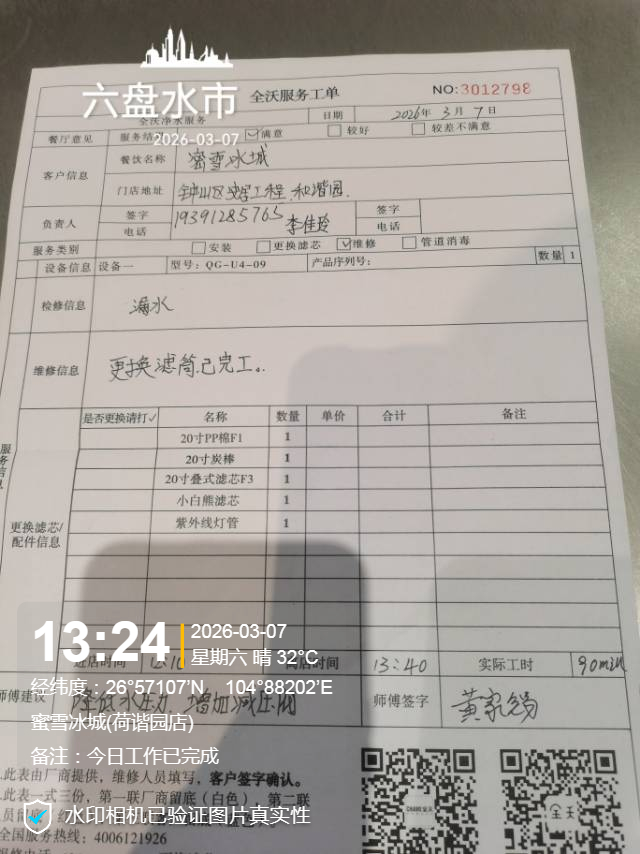 六盘水市
2026-03-07
全沃服务工单
NO:3012798
全沃净水服务
日期 2026年3月7日
餐厅意见 服务结 ✓满意 较好 较差不满意
客户信息
餐饮名称 蜜雪冰城
门店地址 钟山区 工程 和谐园
负责人 签字 电话 19391285765 李佳玲 签字 电话
服务类别 安装 更换滤芯 ✓维修 管道消毒
设备信息 设备一 型号：QG-U4-09 产品序列号： 数量 1
检修信息 漏水
维修信息 更换滤筒.已完工。
服务信息
更换滤芯/配件信息
是否更换请打✓ 名称 数量 单价 合计 备注
20寸PP棉F1 1
20寸炭棒 1
20寸叠式滤芯F3 1
小白熊滤芯 1
紫外线灯管 1
进店时间 离店时间 13:40 实际工时 90min
师傅建议 降低水压力，增加减压阀 师傅签字
13:24
2026-03-07
星期六 晴 32℃
经纬度：26°57107′N，104°88202′E
蜜雪冰城(荷谐园店)
备注：今日工作已完成
.此表由厂商提供，维修人员填写，客户签字确认。
.此表一式三份，第一联厂商留底（白色），第二联
水印相机已验证图片真实性
全国服务热线：4006121926
CHANG全天